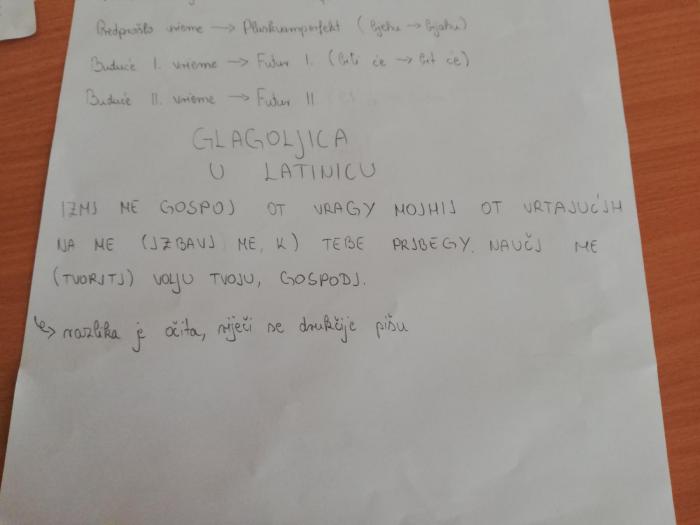 Predprošlo vrieme → Pluskvamperfekt (bjehu → bijahu)
Buduće I. vrieme → Futur I. (biti će → bit će)
Buduće II. vrieme → Futur II.
GLAGOLJICA
U LATINICU
IZMJ ME GOSPOJ OT VRAGY MOJHIJ OT VRTAJUĆJH
NA ME (JZBAVJ ME, K) TEBE PRJBEGY. NAUČJ ME
(TVORJTJ) VOLJU TVOJU, GOSPODJ.
↳ razlika je očita, riječi se drukčije pišu